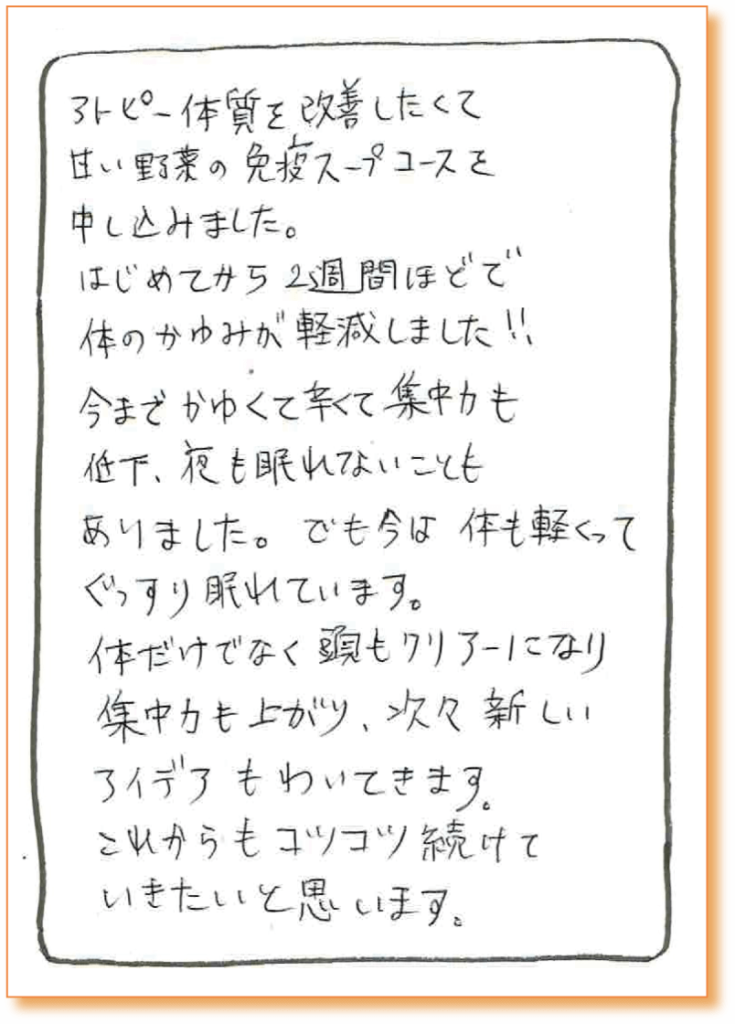 アトピー体質を改善したくて
甘い野菜の免疫スープコースを
申し込みました。
はじめてから2週間ほどで
体のかゆみが軽減しました!!
今までかゆくて辛くて集中力も
低下、夜も眠れないことも
ありました。でも今は体も軽くって
ぐっすり眠れています。
体だけでなく頭もクリアーになり
集中力も上がり、次々新しい
アイデアもわいてきます。
これからもコツコツ続けて
いきたいと思います。